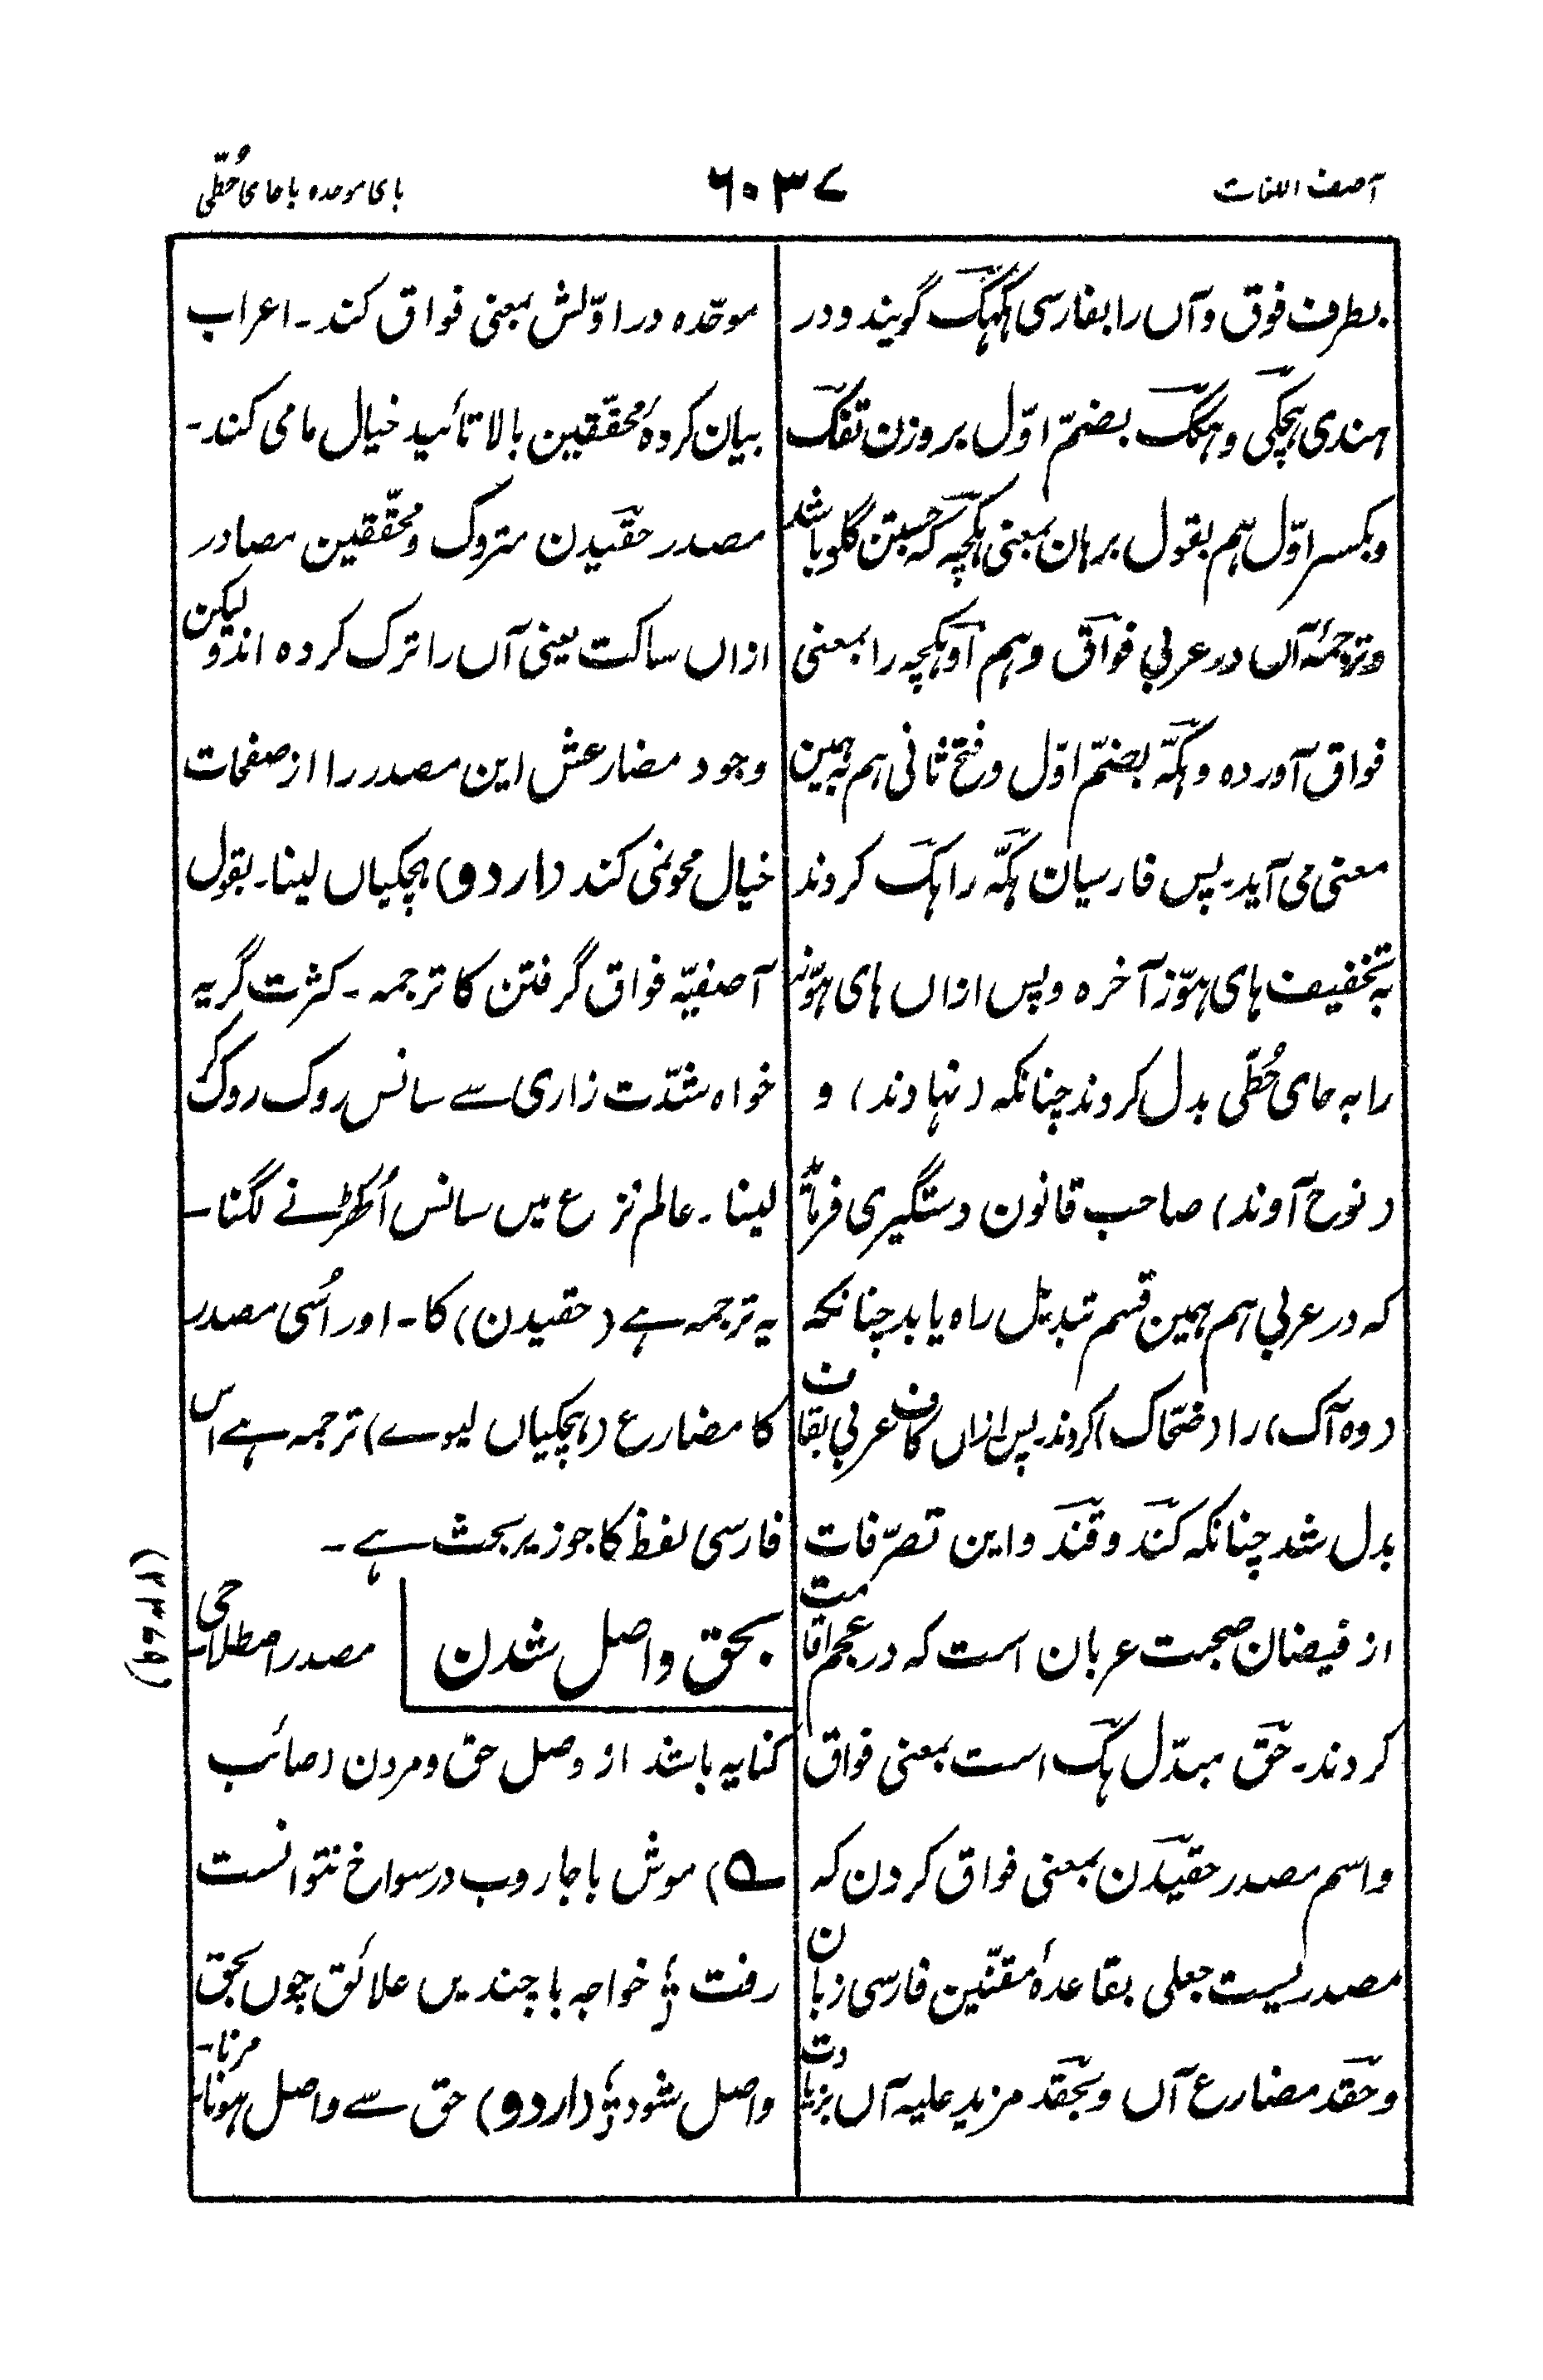 آصف اللغات
۶۰۳۷
بای موحده با حای حُطّی
بطرف فوق و آں را بفارسی ہکہک گویند و در
ہندی ہچکی و ہکک بضمّ اوّل بر وزن تفک
و بکسر اوّل ہم بقول برہان بمعنی ہکچہ کہ جستن گلو باشد
و ترجمۂ آں در عربی فواق و ہم او ہکچہ را بمعنی
فواق آورده و ہکّہ بضمّ اوّل و فتح ثانی ہم بہمین
معنی می آید۔ پس فارسیان ہکّہ را ہک کردند
بہ تخفیف ہای ہوّز آخره و پس ازاں ہای ہوّز
را بہ حای حُطّی بدل کردند چنانکہ (نہاوند) و
(نوح آوند) صاحب قانون دستگیری فرماید
کہ در عربی ہم ہمین قسم تبدیل راہ یابد چنانکہ
(ده آک) را (ضحّاک) کردند۔ پس ازاں کاف عربی بقاف
بدل شد چنانکہ کند و قند و این تصرّفات
از فیضان صحبت عربان است کہ در عجم اقامت
کردند۔ حق مبدّل ہک است بمعنی فواق
و اسم مصدر حقیدن بمعنی فواق کردن کہ
مصدریست جعلی بقاعدۂ مقنّنین فارسی زبان
و حقد مضارع آں و بحقد مزید علیہ آں بزیادت
موحّده در اوّلش بمعنی فواق کند۔ اعراب
بیان کردۂ محقّقین بالا تائید خیال ما می کند۔
مصدر حقیدن متروک و محقّقین مصادر
ازاں ساکت یعنی آں را ترک کرده اند و لیکن
وجود مضارعش این مصدر را از صفحات
خیال محو نمی کند (اردو) ہچکیاں لینا۔ بقول
آصفیّہ فواق گرفتن کا ترجمہ۔ کثرت گریہ
خواہ شدّت زاری سے سانس روک روک کر
لینا۔ عالم نزع میں سانس اُکھڑنے لگنا۔
یہ ترجمہ ہے (حقیدن) کا۔ اور اُسی مصدر
کا مضارع (ہچکیاں لیوے) ترجمہ ہے اس
فارسی لفظ کا جو زیر بحث ہے۔
بحق واصل شدن | مصدر اصطلاحی
کنایہ باشد از وصل حق و مردن (صائب
ے) موش با جاروب در سوراخ نتوانست
رفت ؛ خواجہ با چندیں علائق چوں بحق
واصل شود ؛ (اردو) حق سے واصل ہونا۔ مرنا۔